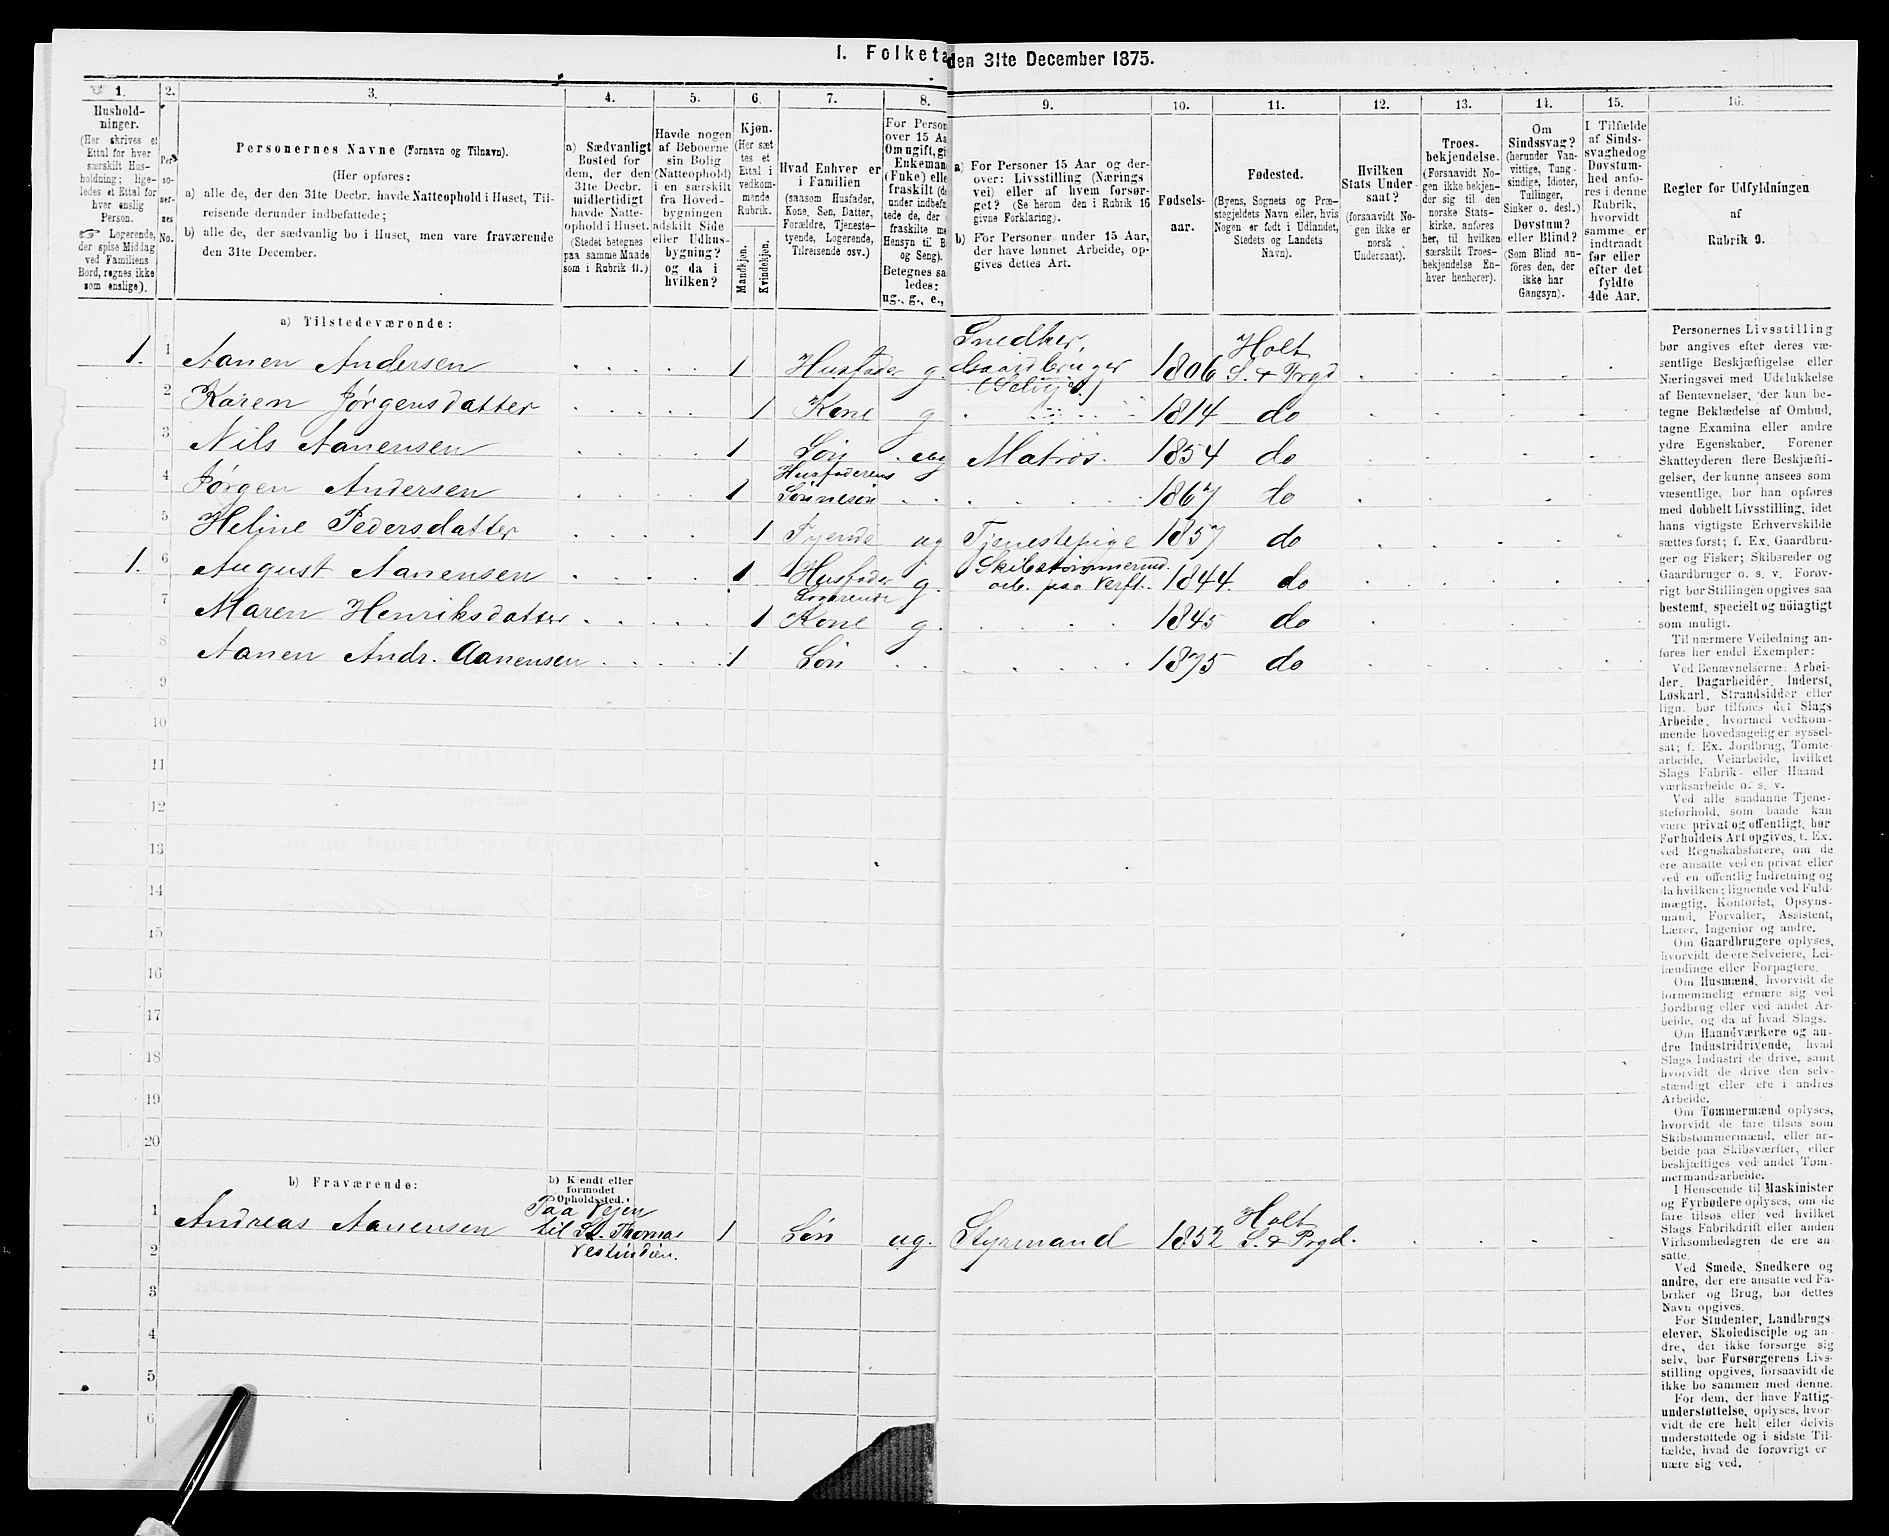 1. Folketa den 31te December 1875.
1. 2. 3. 4. 5. 6. 7. 8. 9. 10. 11. 12. 13. 14. 15. 16.
Hushold-
ninger.
(Her skrives et
Ettal for hver
særskilt Hus-
holdning; lige-
ledes et Ettal for
hver enslig
Person.
Logerende,
der spise Middag
ved Familiens
Bord, regnes ikke
som enslige).
Per-
soner-
nes
No.
Personernes Navne (Fornavn og Tilnavn).
(Her opføres:
a) alle de, der den 31te Decbr. havde Natteophold i Huset, Til-
reisende derunder indbefattede;
b) alle de, der sædvanlig bo i Huset, men vare fraværende
den 31te December.
a) Sædvanligt
Bosted for
dem, der den
31te Decbr.
midlertidigt
havde Natte-
ophold i Huset.
(Stedet betegnes
paa samme Maade
som i Rubrik 11.)
Havde nogen
af Beboerne
sin Bolig
(Natteophold)
i en særskilt
fra Hoved-
bygningen
adskilt Side
eller Udhus-
bygning?
og da i
hvilken?
Kjøn.
(Her sæt
tes et
Ettal i
vedkom-
mende
Rubrik.
Mandkjøn.
Kvindekjøn.
Hvad Enhver er
i Familien
(saasom Husfader,
Kone, Søn, Datter,
Forældre, Tjeneste-
tyende, Logerende,
Tilreisende osv.)
For Person
over 15 Aa
Om ugift, gi
Enkeman
(Fnke) elle
fraskilt (de
under indbefat
tede de, der
fraskilte me
Hensyn til B
og Seng).
Betegnes saa
ledes:
ug., g., e.,
a) For Personer 15 Aar og der-
over: Livsstilling (Nærings
vei) eller af hvem forsør-
get? (Se herom den i Rubrik 16
givne Forklaring).
b) For Personer under 15 Aar,
der have lønnet Arbeide, op-
gives dettes Art.
Fødsels-
aar.
Fødested.
(Byens, Sognets og Præ-
stegjeldets Navn eller, hvis
Nogen er født i Udlandet,
Stedets og Landets
Navn).
Hvilken
Stats Under-
saat?
(forsaavidt No-
gen ikke er
norsk
Undersaat).
Troes-
bekjendelse.
(Forsaavidt No-
gen ikke bekjen-
der sig til den
norske Stats-
kirke, anføres
her, til hvilken
særskilt Troes-
bekjendelse En-
hver henhører).
Om
Sindssvag?
(herunder Van-
vittige, Tung-
sindige, Idioter,
Tullinger,
Sinker o. desl.)
Døvstum?
eller Blind?
(Som Blind an-
føres den, der
ikke har
Gangsyn).
I Tilfælde
af Sinds-
svaghed og
Døvstum-
hed anfø-
res i denne
Rubrik,
hvorvidt
samme er
indtraadt
før eller
efter det
fyldte
4de Aar.
Regler for Udfyldningen
af
Rubrik 9.
a) Tilstedeværende:
1. 1 Aanen Andersen 1 Husfader g. Snedker, Gaardbruger (Selvej.) 1806 Holt S. & Prgd
2 Karen Jørgensdatter 1 Kone g 1814 do
3 Nils Aanensen 1 Søn ug Matros. 1854 do
4 Jørgen Andersen 1 Husfaderens Sønnesøn 1867 do
5 Heline Pedersdatter 1 Tyende ug Tjenestepige 1857 do
1. 6 August Aanensen 1 Husfader Logerende g. Skibstømmermd. arb. paa Verft. 1844. do
7 Maren Henriksdatter 1 Kone g. 1845 do
8 Aanen Andr. Aanensen 1 Søn 1875 do
9
10
11
12
13
14
15
16
17
18
19
20
b) Fraværende:
b) Kjendt eller
formodet
Opholdssted.
1 Andreas Aanensen Paa Vejen til St. Thomas Vestindien. 1 Søn ug. Styrmand 1852 Holt S. & Prgd.
2
3
4
5
6
Personernes Livsstilling
bør angives efter deres væ-
sentlige Beskjæftigelse eller
Næringsvei med Udelukkelse
af Benævnelser, der kun be-
tegne Beklædelse af Ombud,
tagne Examina eller andre
ydre Egenskaber. Forener
Skatteyderen flere Beskjæfti-
gelser, der kunne ansees som
væsentlige, bør han opføres
med dobbelt Livsstilling, idet
hans vigtigste Erhvervskilde
sættes først; f. Ex. Gaardbru-
ger og Fisker; Skibsreder og
Gaardbruger o. s. v. Forøv-
rigt bør Stillingen opgives saa
bestemt, specielt og nøiagtigt
som muligt.
Til nærmere Veiledning an-
føres her endel Exempler:
Ved Benævnelserne: Arbei-
der, Dagarbeider, Inderst,
Løskarl, Strandsidder eller
lign. bør tilføies det Slags
Arbeide, hvormed vedkom-
mende hovedsagelig er syssel-
sat; f. Ex. Jordbrug, Tomte-
arbeide, Veiarbeide, hvilket
Slags Fabrik- eller Haand-
værksarbeide o. s. v.
Ved alle saadanne Tjene-
steforhold, som baade kan
være privat og offentligt, bør
Forholdets Art opgives, f. Ex.
ved Regnskabsførere, om de
ere ansatte ved en privat eller
ved en offentlig Indretning og
da hvilken; lignende ved Fuld-
mægtig, Kontorist, Opsyns-
mand, Forvalter, Assistent,
Lærer, Ingeniør og andre.
Om Gaardbrugere oplyses,
hvorvidt de ere Selveiere, Lei-
lændinge eller Forpagtere.
Om Husmænd, hvorvidt de
fornemmelig ernære sig ved
Jordbrug eller ved andet Ar-
beide, og da af hvad Slags.
Om Haandværkere og an-
dre Industridrivende, hvad
Slags Industri de drive, samt
hvorvidt de drive den selv-
stændigt eller ere i andres
Arbeide.
Om Tømmermænd oplyses,
hvorvidt de fare tilsøs som
Skibstømmermænd, eller ar-
beide paa Skibsværfter, eller
beskjæftiges ved andet Tøm-
mermandsarbeide.
I Henseende til Maskinister
og Fyrbødere oplyses, om de
fare tilsøs eller ved hvilket
Slags Fabrikdrift eller anden
Virksomhedsgren de ere an-
satte.
Ved Smede, Snedkere og
andre, der ere ansatte ved Fa-
briker og Brug, bør dettes
Navn opgives.
For Studenter, Landbrugs
elever, Skoledisciple og an-
dre, der ikke forsørge sig
selv, bør Forsørgerens Livs-
stilling opgives, forsaavidt de
ikke bo sammen med denne.
For dem, der have Fattig-
understøttelse, oplyses, hvor-
vidt de ere helt eller delvis
understøttede og i sidste Til-
fælde, hvad de forøvrigt er
nære sig ved.